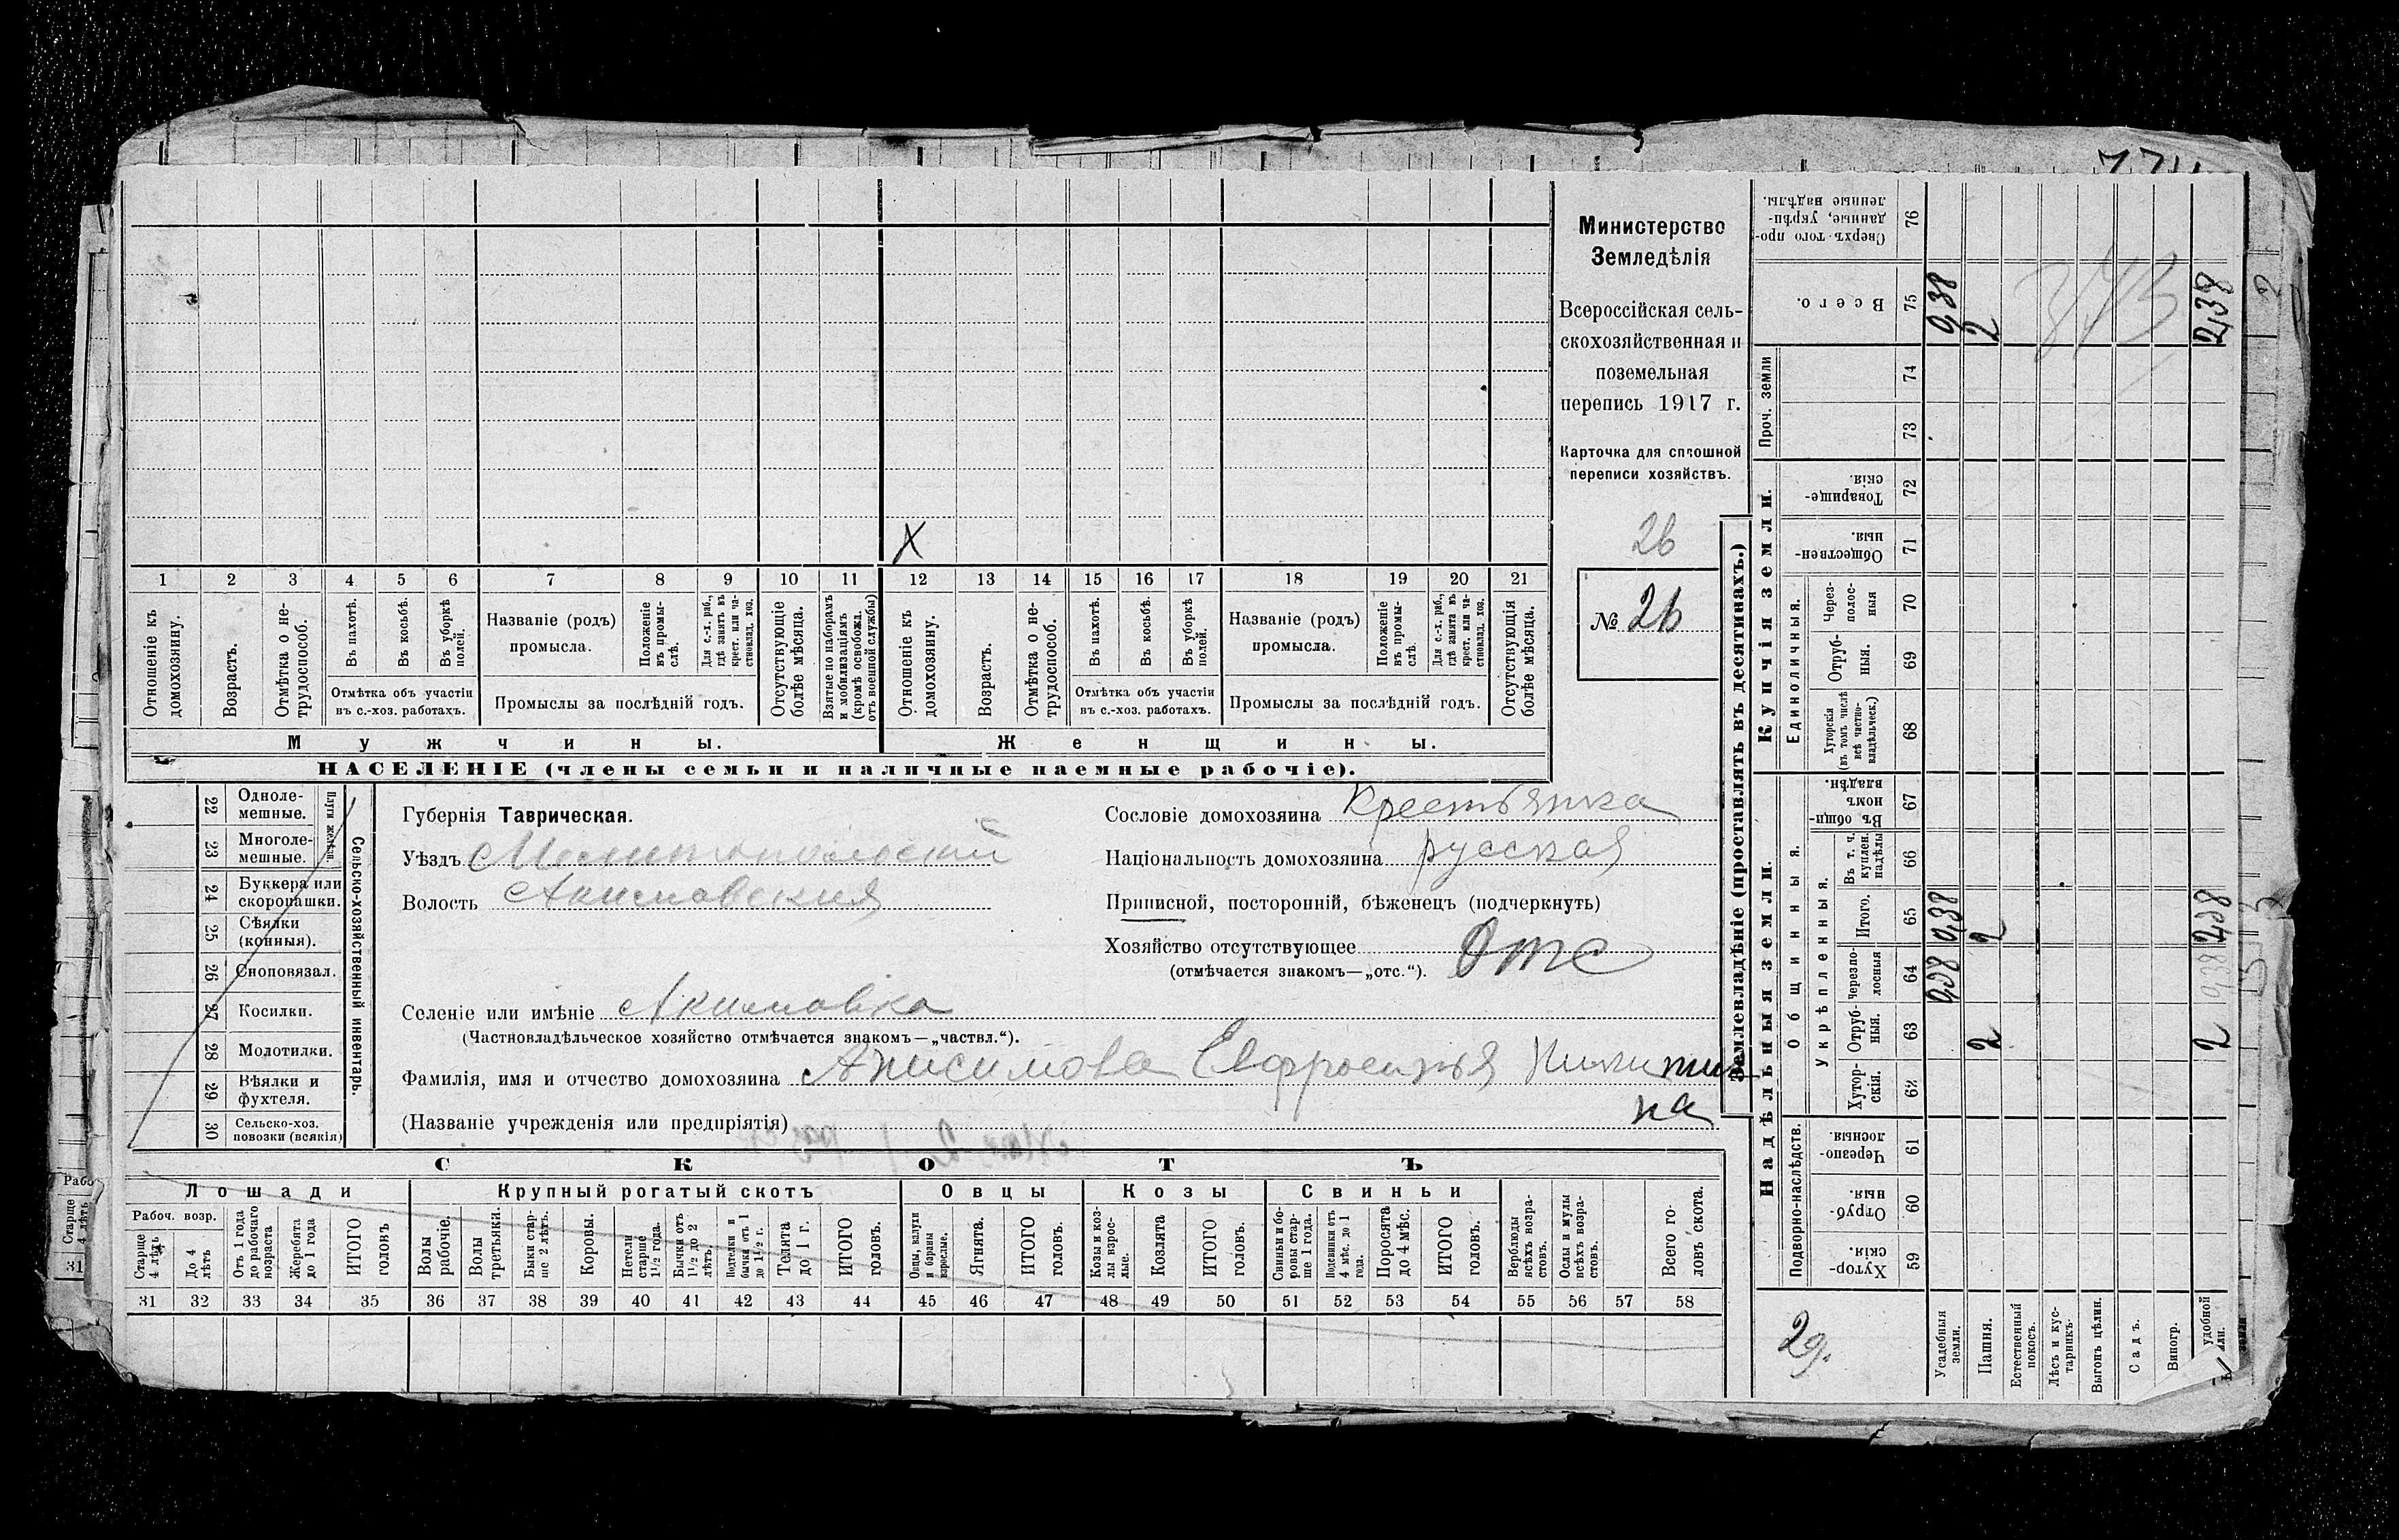 Министерство
Земледѣлія
Всероссійская сель-
скохозяйственная и
поземельная
перепись 1917 г.
Карточка для сплошной
переписи хозяйствъ.
26
№ 26
X
1 2 3 4 5 6 7 8 9 10 11 12 13 14 15 16 17 18 19 20 21
Отношеніе къ домохозяину.
Возрастъ.
Отмѣтка о не-трудоспособ.
Въ пахотѣ.
Въ косьбѣ.
Въ уборкѣ полей.
Отмѣтка объ участіи въ с.-хоз. работахъ.
Названіе (родъ) промысла.
Положеніе въ промы-слѣ.
Для с.-х. раб., гдѣ занятъ въ крест. или ча-стновлад. хоз.
Промыслы за послѣдній годъ.
Отсутствующіе болѣе мѣсяца.
Взятые по наборамъ и мобилизаціямъ (кромѣ освобожд. отъ военной службы)
Отношеніе къ домохозяину.
Возрастъ.
Отмѣтка о не-трудоспособ.
Въ пахотѣ.
Въ косьбѣ.
Въ уборкѣ полей.
Отмѣтка объ участіи въ с.-хоз. работахъ.
Названіе (родъ) промысла.
Положеніе въ промы-слѣ.
Для с.-х. раб., гдѣ занята въ крест. или ча-стновлад. хоз.
Промыслы за послѣдній годъ.
Отсутствующія болѣе мѣсяца.
Мужчины.
Женщины.
НАСЕЛЕНІЕ (члены семьи и наличные наемные рабочіе).
22 Одноле-мешные.
23 Многоле-мешные.
Плуги желѣзн.
24 Буккера или скоропашки.
25 Сѣялки (конныя).
26 Сноповязал.
27 Косилки.
28 Молотилки.
29 Вѣялки и фухтеля.
30 Сельско-хоз. повозки (всякія)
Сельско-хозяйственный инвентарь.
Губернія Таврическая.
Уѣздъ Мелитопольский
Волость Акимовская
Сословіе домохозяина Крестьянка
Національность домохозяина русская
Приписной, посторонній, бѣженец (подчеркнуть)
Хозяйство отсутствующее Отс
(отмѣчается знакомъ—„отс.“).
Селеніе или имѣніе Акимовка
(Частновладѣльческое хозяйство отмѣчается знакомъ—„частвл.“).
Фамилія, имя и отчество домохозяина Анисимова Евфросинья Никити
на
(Названіе учрежденія или предпріятія)
СКОТЪ
Лошади
Крупный рогатый скотъ
Овцы
Козы
Свиньи
Рабоч. возр.
Старше 4 лѣтъ
До 4 лѣтъ
Отъ 1 года до рабочаго возраста
Жеребята до 1 года
ИТОГО головъ
Волы рабочіе.
Волы третьяки.
Быки стар-ше 2 лѣтъ.
Коровы.
Нетели старше 1½ года.
Бычки отъ 1½ до 2 лѣтъ.
Подтелки и бычки отъ 1 до 1½ г.
Телята до 1 г.
ИТОГО головъ.
Овцы, валухи и бараны взрослые.
Ягнята.
ИТОГО головъ.
Козы и коз-лы взрос-лые.
Козлята
ИТОГО головъ.
Свиньи и бо-ровы стар-ше 1 года.
Подсвинки отъ 4 мѣс. до 1 года.
Поросята до 4 мѣс.
ИТОГО головъ.
Верблюды всѣхъ возра-стовъ.
Ослы и мулы всѣхъ возра-стовъ.
Всего го-ловъ скота.
31 32 33 34 35 36 37 38 39 40 41 42 43 44 45 46 47 48 49 50 51 52 53 54 55 56 57 58
Землевладѣніе (проставлять въ десятинахъ.)
Надѣльныя земли.
Купчія земли.
Проч. земли
Подворно-наслѣдств.
Общинныя.
Укрѣпленныя.
Единоличныя.
Хутор-скія. 59
Отруб-ныя. 60
Черезпо-лосныя. 61
Хутор-скія. 62
Отруб-ныя. 63
Черезпо-лосныя 64
Итого. 65
Въ т. ч. куплен. надѣлы 66
Въ общи-номъ владѣн. 67
Хуторскія (въ томъ числѣ всѣ частно-владѣльческ.) 68
Отруб-ныя. 69
Через-полос-ныя 70
Обществен-ныя. 71
Товарище-скія. 72
73
74
Всего. 75
Сверхъ того про-данные, укрѣп-ленные надѣлы. 76
Усадебныя земли. 0,38 0,38 0,38
Пашня. 2 2 2
Естественный покосъ.
Лѣсъ и кус-тарникъ.
Выгонъ цѣлин.
Садъ.
Виногр.
удобной 2 0,38 2,38 2,38
343